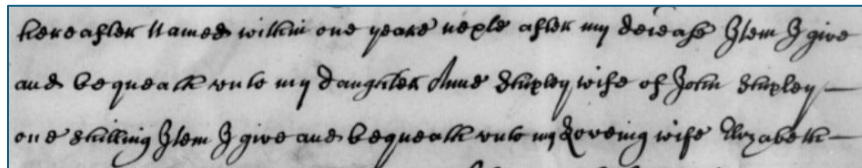 hereafter named within one yeare nexte after my decease Item I give
and bequeath unto my daughter Anne Shipley wife of John Shipley
one shilling Item I give and bequeath unto my Loveing wife Elizabeth